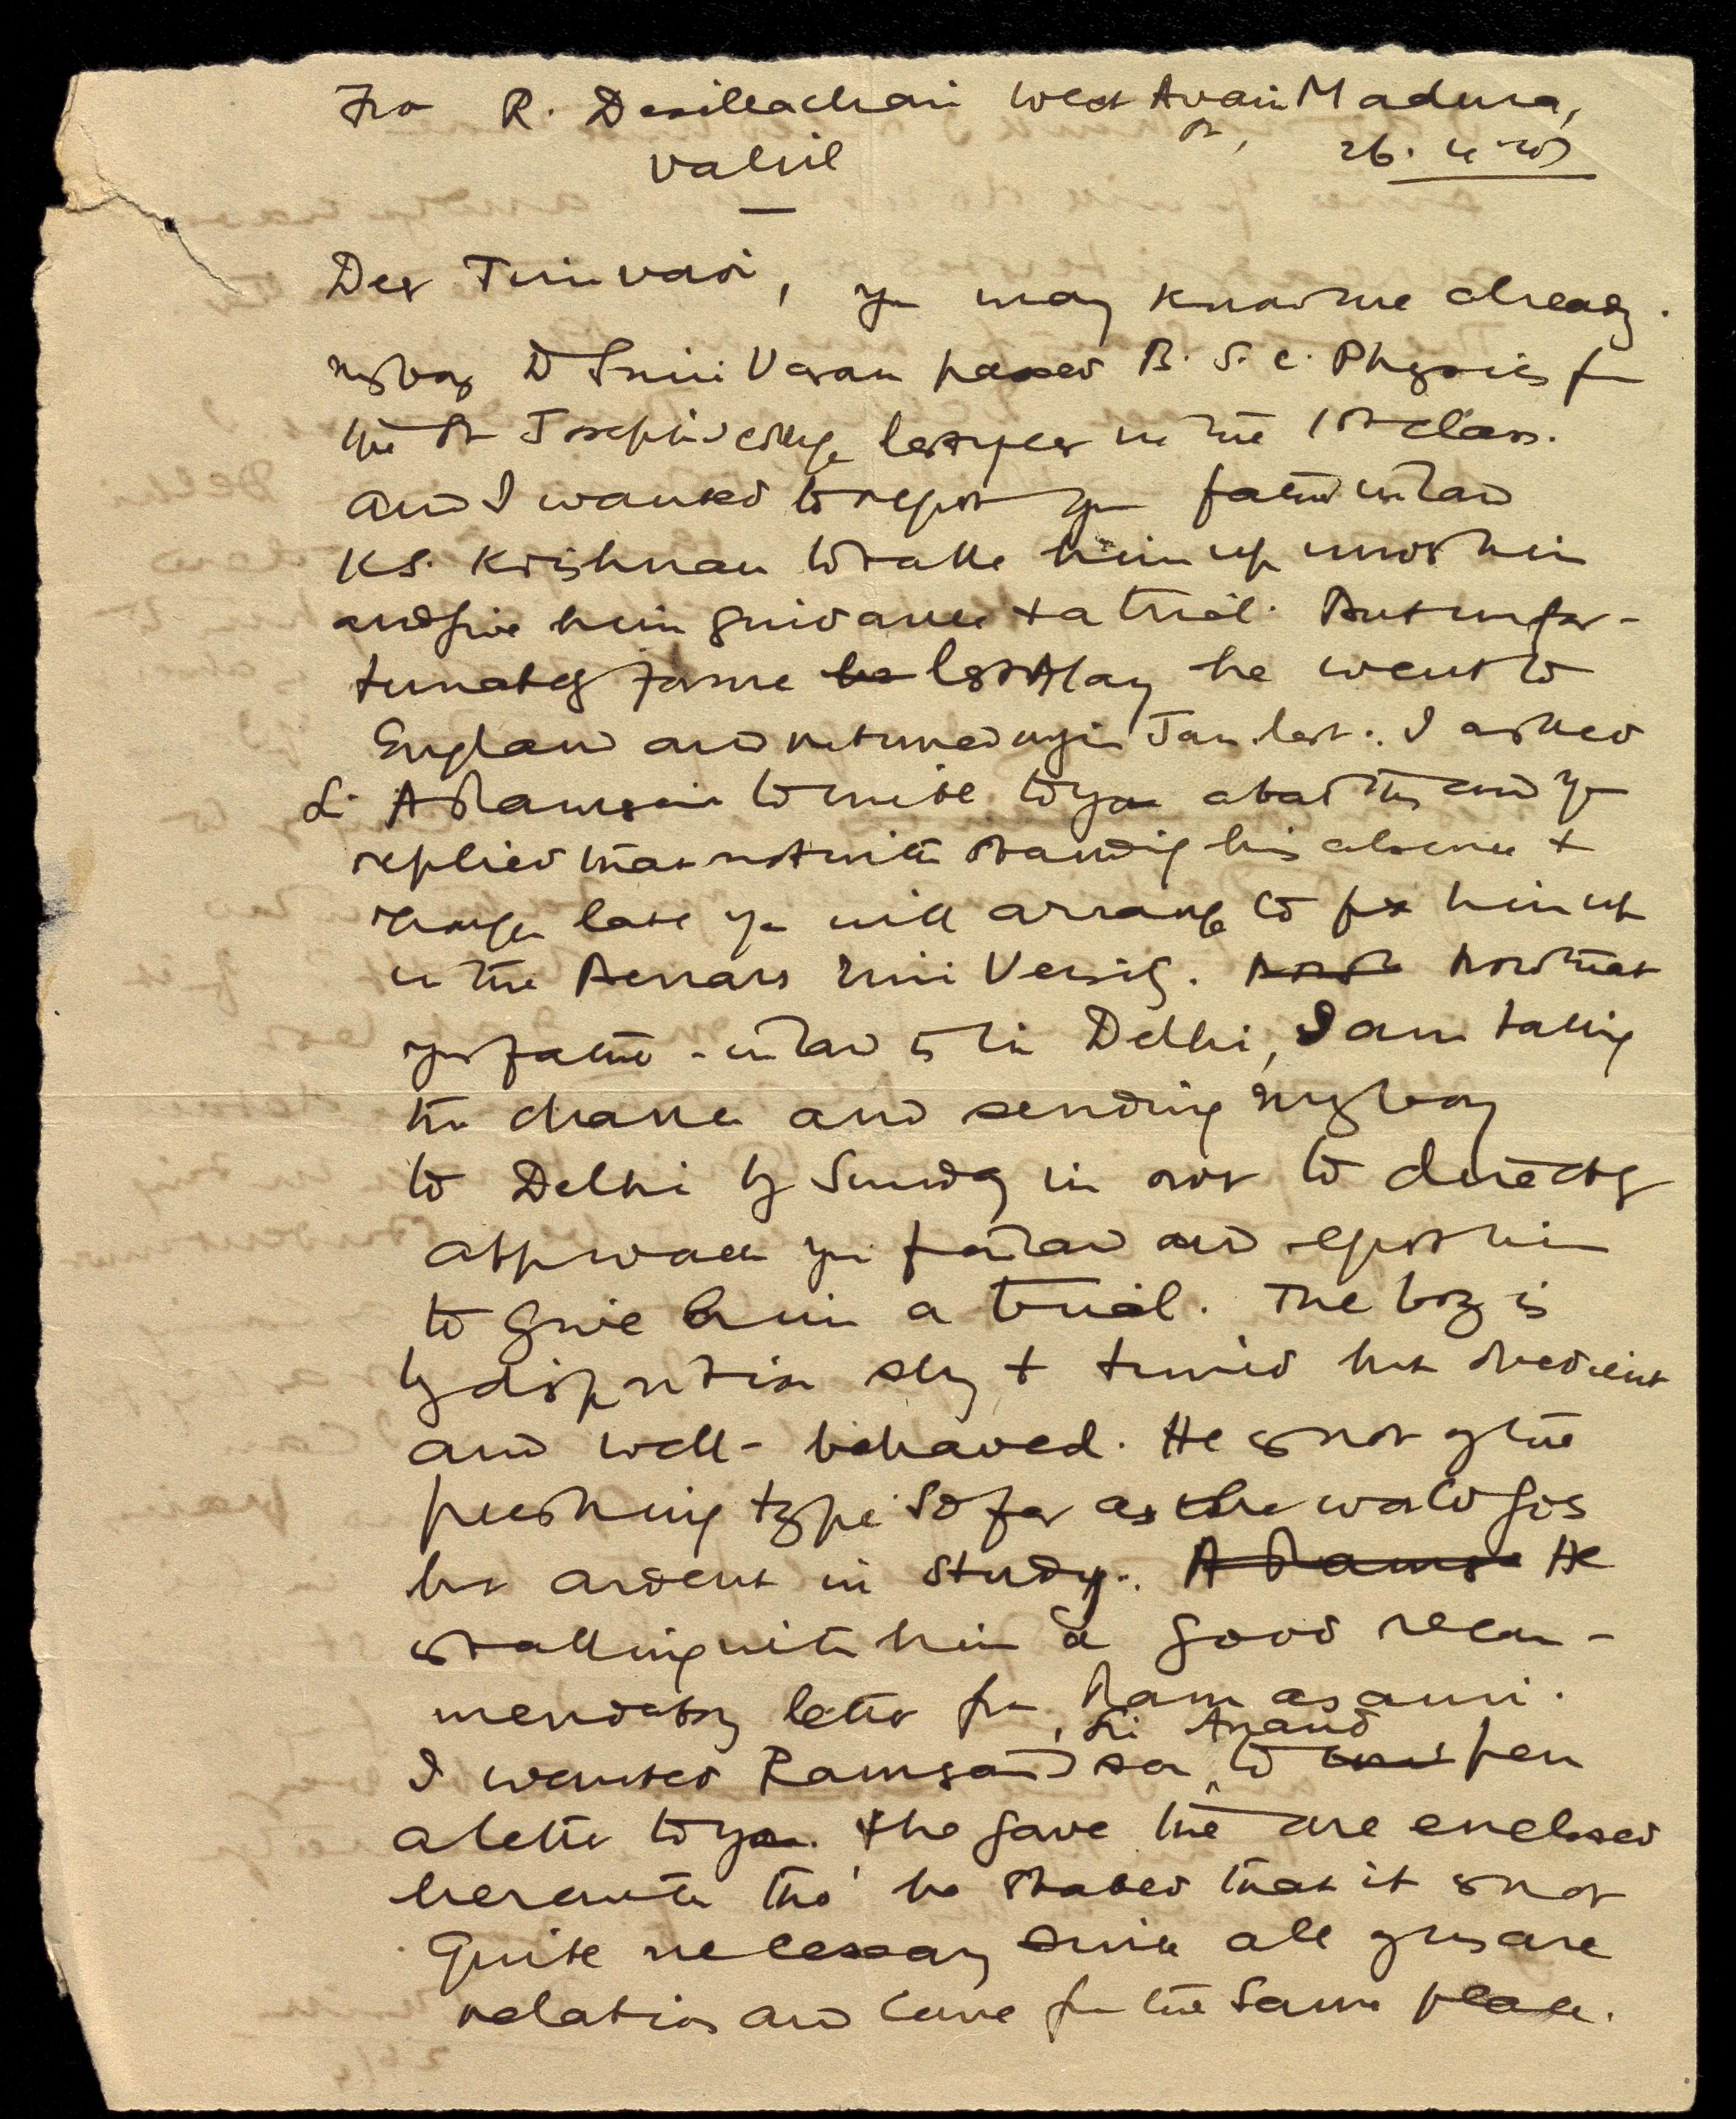 From R. Desikachari West Avani Madura,
Vakil St, 26.
Dear Srinivasa, you may know me already.
my boy D Srini Vasan passed B. S. C. Physics from
the St Joseph's college last year in the 1st class.
and I wanted to request your father in law
K S. Krishnan to take him up under him
and give him guidance + a trial. But unfor-
tunately for me he last May he went to
England and returned only in Jan last. I asked
Sri A Ramsami to write to you about this and you
replied that notwithstanding his absence +
though late you will arrange to fix him up
in the Benars Uni Versity. Now that
your father-in law is in Delhi, I am taking
the chance and sending my boy
to Delhi by Sunday in order to directly
approach your father in law and request him
to give him a trial. The boy is
by disposition shy + timid but obedient
and well-behaved. He is not of the
pushing type so far as the world goes
but ardent in study. A Ramsa He
is taking with him a good recom-
mendatory letter from Ramasami.
Sri Anand
I wanted Ramsami's son to pen
a letter to you. & he gave the one enclosed
herewith tho' he stated that it is not
quite necessary since all of us are
relations and come from the same place.